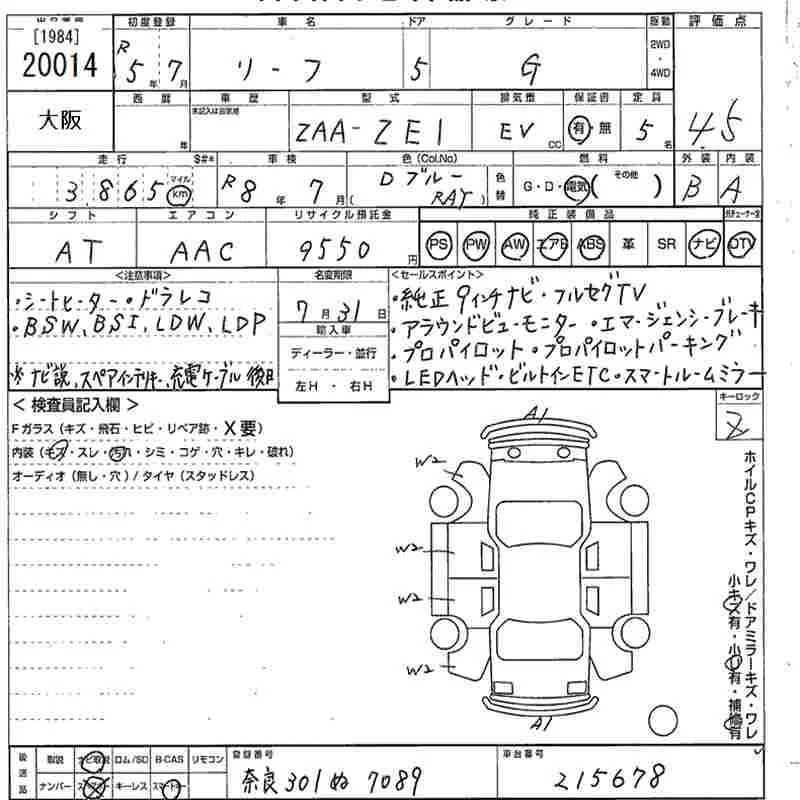 [1984]
20014
大阪
初度登録 車名 ドア グレード 駆動 評価点
R 5年 7月 リーフ 5 G 2WD・4WD 4.5
西暦 車歴 型式 排気量 保証書 定員
年 未記入は自家用 ZAA-ZE1 EV CC 有・無 5名
走行 S#* 車検 色(Col.No) 燃料 外装 内装
3865 マイル km R8年 7月 Dブルー ( RAY ) 色替 G・D・電気 ( その他 ) B A
シフト エアコン リサイクル預託金 純正装備品
AT AAC 9550円 PS PW AW エアB ABS 革 SR ナビ DTV
<注意事項>
・シートヒーター・ドラレコ
・BSW、BSI、LDW、LDP
※ナビ説、スペアインテリキー、充電ケーブル後日
名変期限
7月31日
輸入車
ディーラー・並行
左H ・ 右H
<セールスポイント>
・純正9インチナビ・フルセグTV
・アラウンドビューモニター・エマージェンシーブレーキ
・プロパイロット・プロパイロットパーキング
・LEDヘッド・ビルトインETC・スマートルームミラー
＜検査員記入欄＞
Fガラス(キズ・飛石・ヒビ・リペア跡・X要)
内装(キズ・スレ・汚れ・シミ・コゲ・穴・キレ・破れ)
オーディオ(無し・穴)/タイヤ(スタッドレス)
キーロック
2
A1
W2
W2
W2
W2
A1
ホイルCPキズ・ワレ/ドアミラーキズ・ワレ
小キズ有・小U有・補修有
後送品 取説 ナビ取説 ロム/SD B-CAS リモコン
ナンバー スペアキー キーレス スマートキー
登録番号
奈良301ぬ7089
車台番号
215678